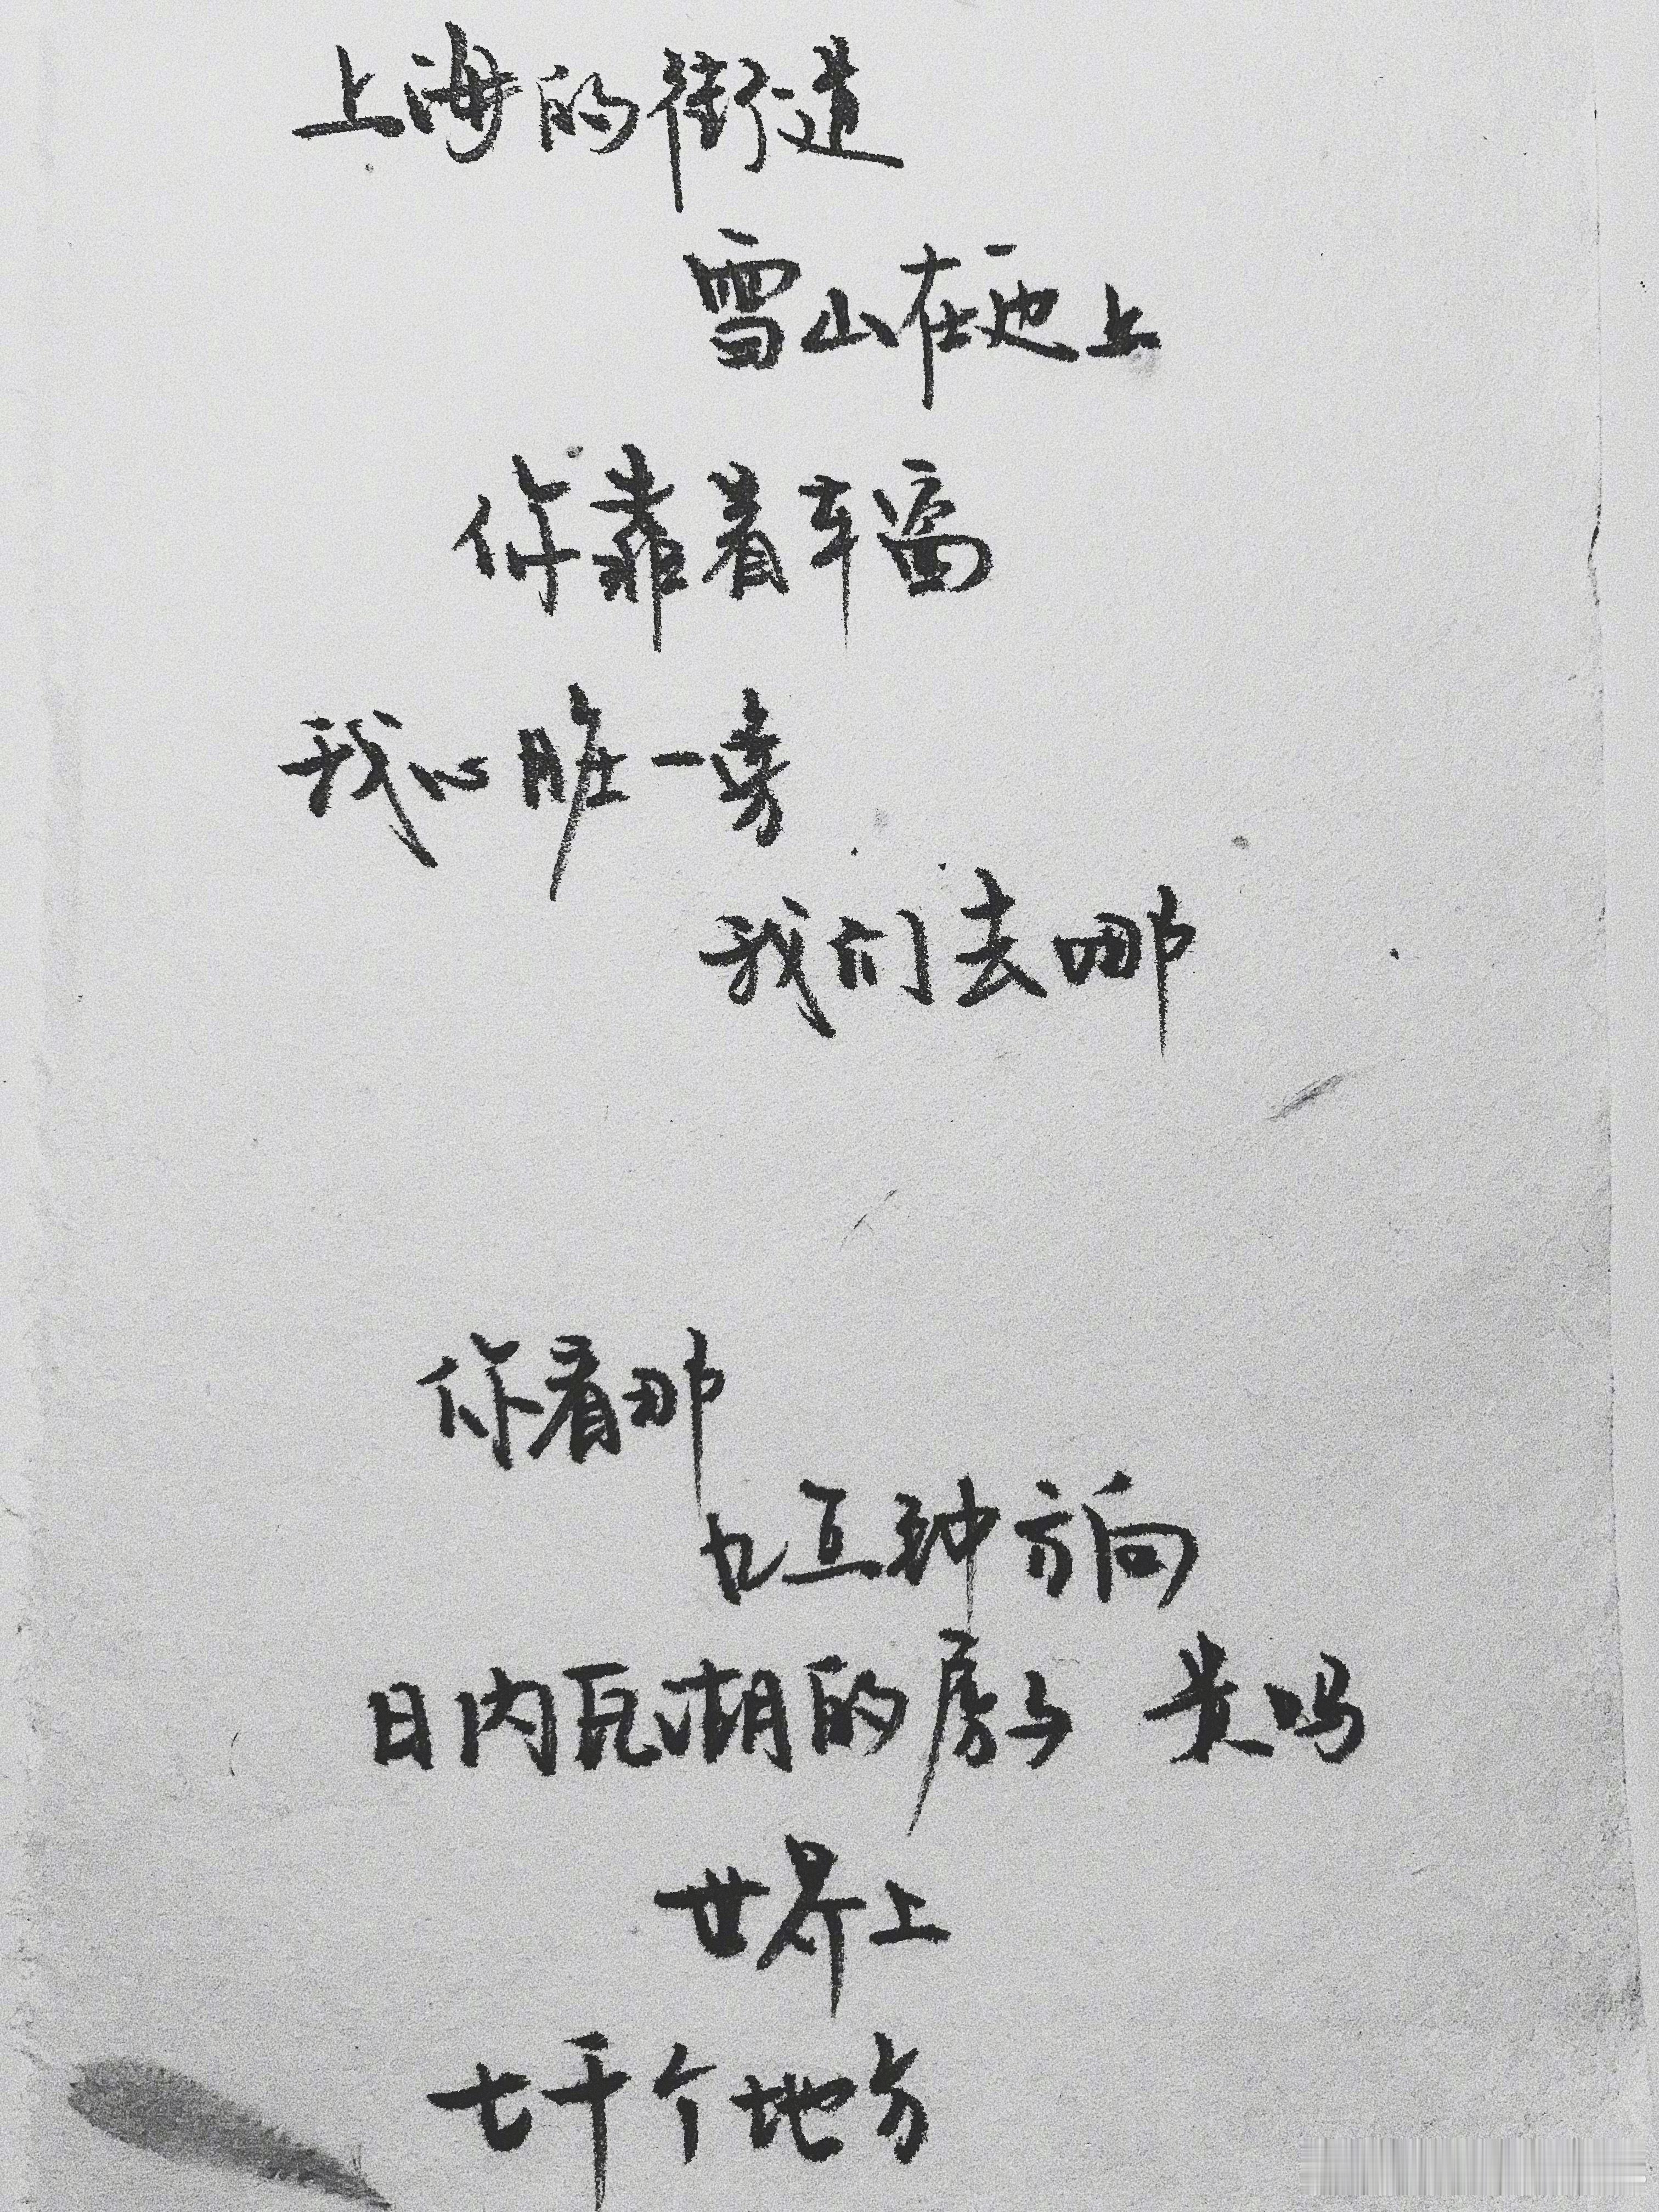 上海的街道
雪山在地上
你靠着车窗
我心脏一旁
我们去哪
你看那
九亙种方向
日内瓦湖的房子 贵吗
世界上
七千个地方